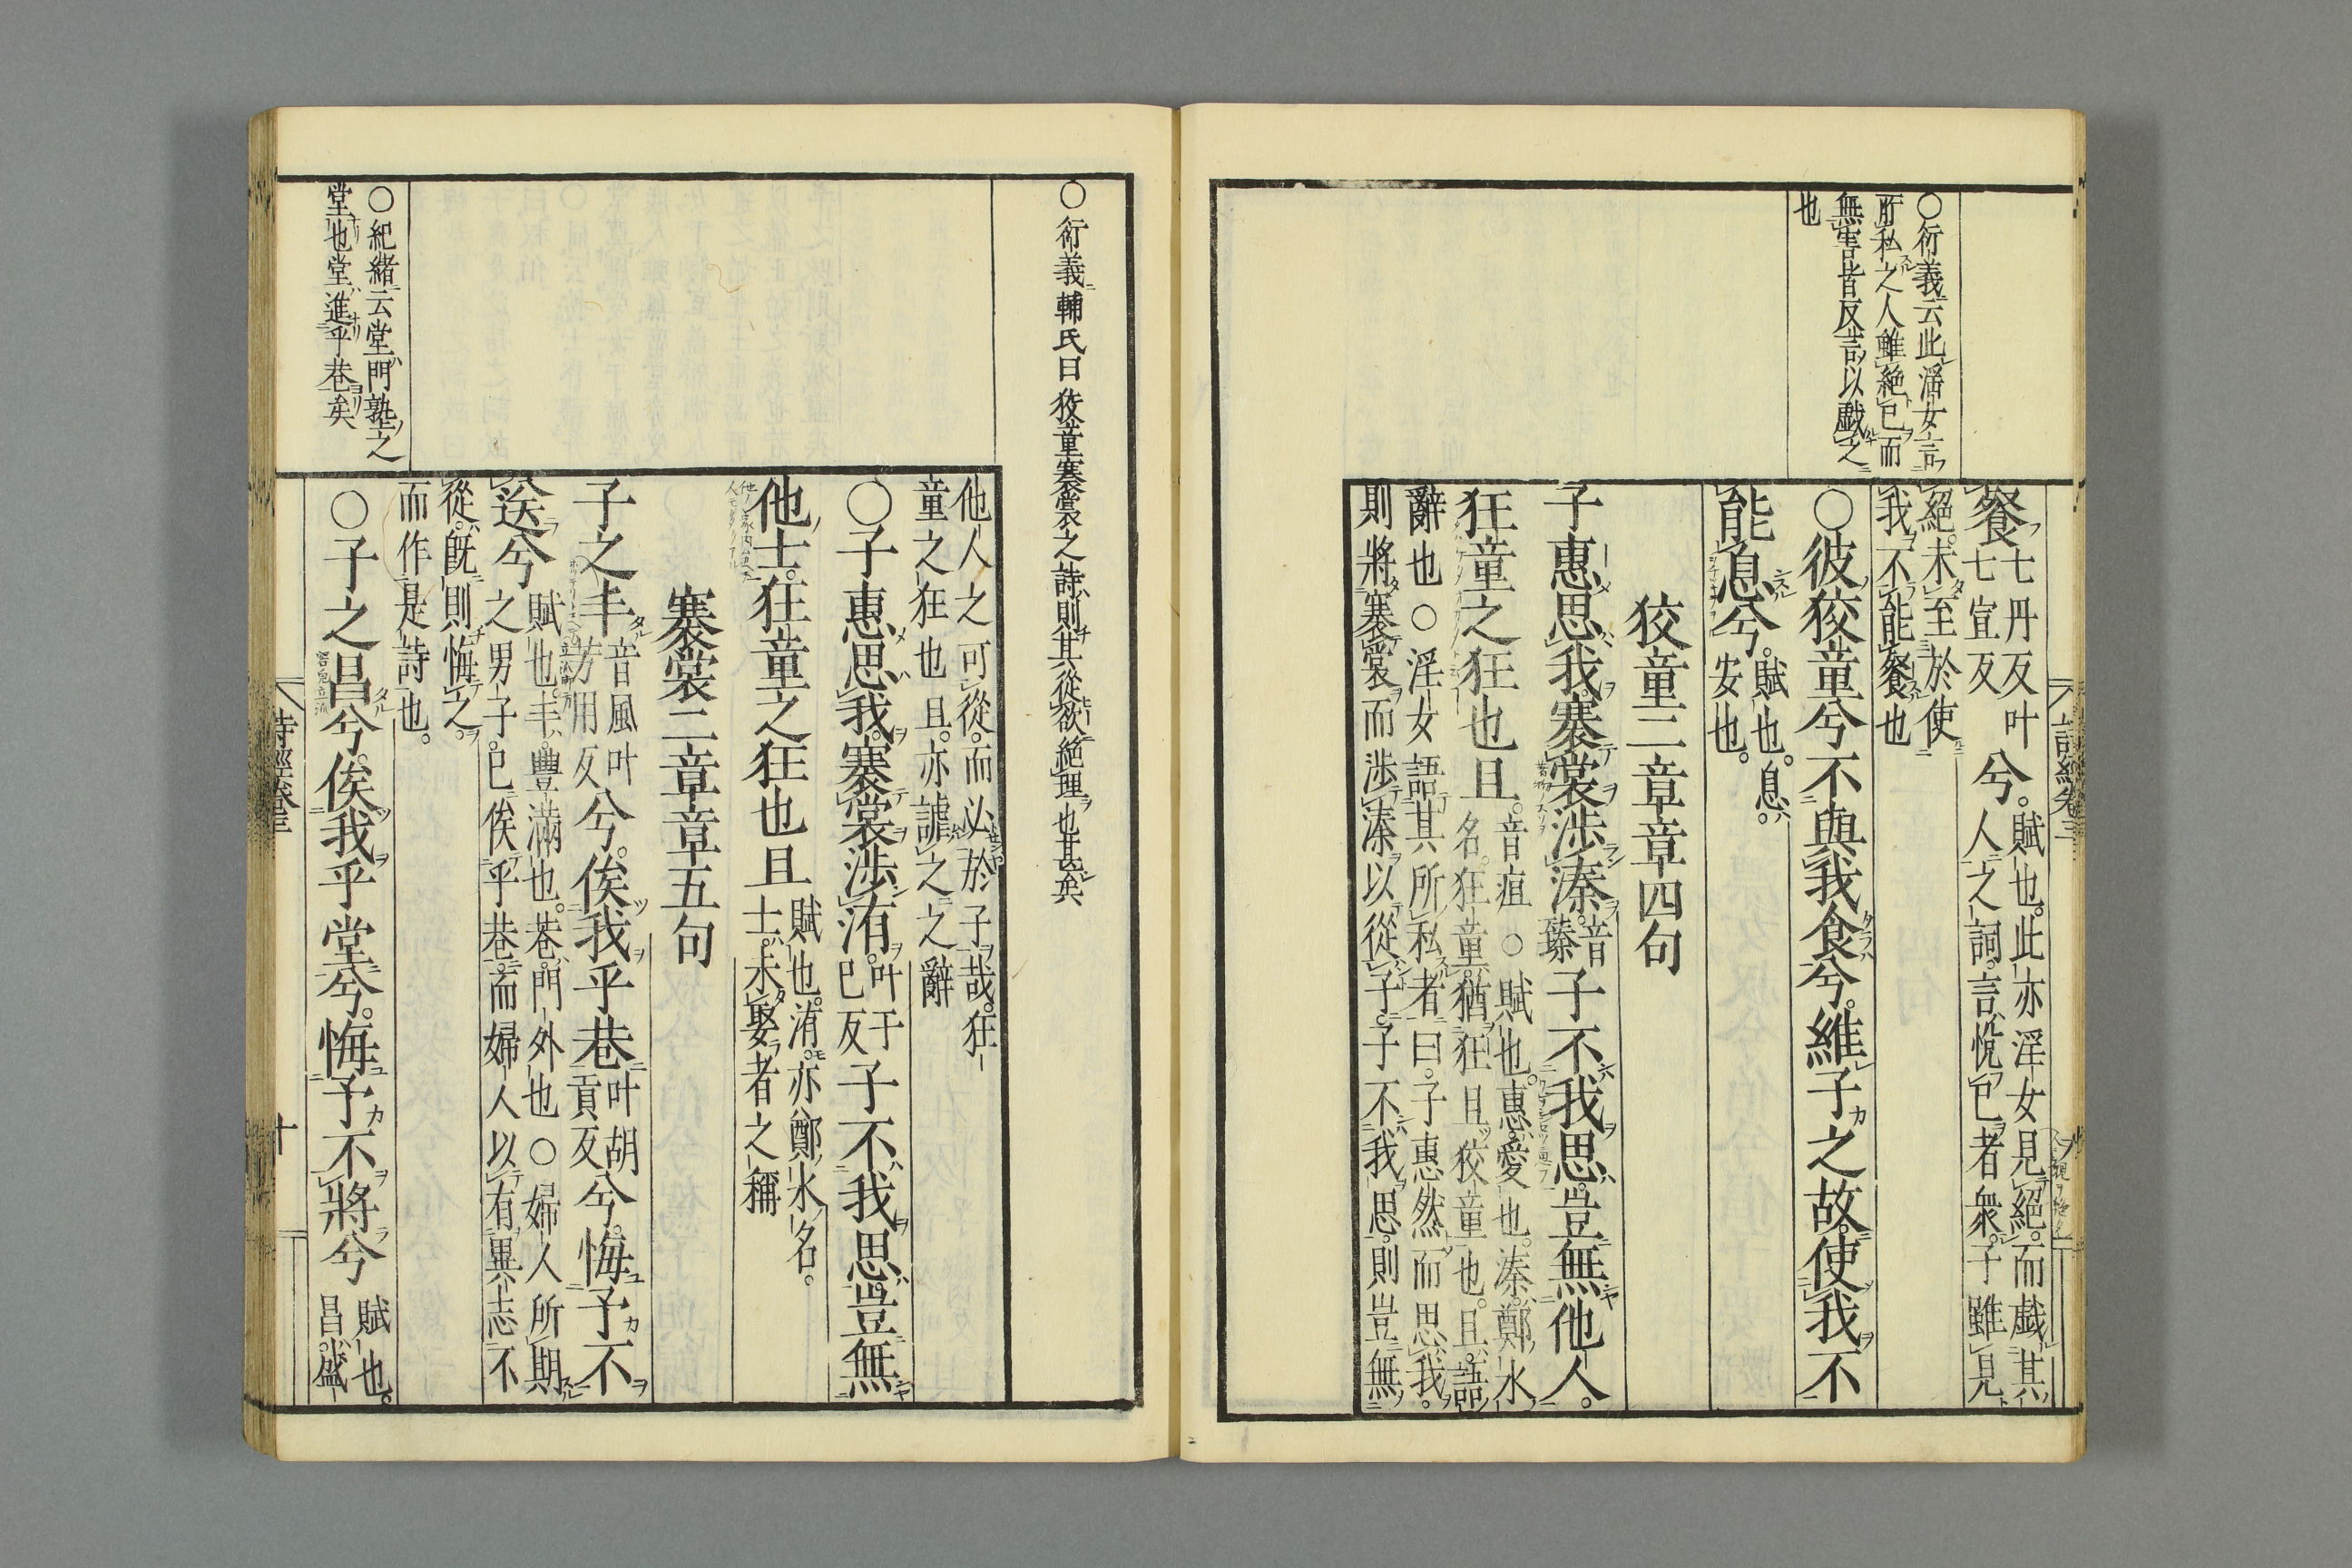 ○衍義云此淫女言
所私之人雖絕已而
無害皆反言以戯之
也
餐七丹反叶七宣反兮。賦也。此亦淫女見絕。而戯其人之詞。言悅已者衆。子雖見
絕。未至於使
我不能餐也
○彼狡童兮不與我食兮。維子之故。使我不
能息兮。賦也。息。安也。
狡童二章章四句
子惠思我。褰裳涉溱。音臻子不我思。豈無他人。
狂童之狂也且。音疽○賦也。惠。愛也。溱。鄭水名。狂童。猶狂且狡童也。且。語
辭也○淫女語其所私者曰。子惠然而思我。
則將褰裳而涉溱以從子。子不我思。則豈無
詩經卷三
○衍義輔氏曰狡童褰裳之詩則其從欲絕理也甚矣
他人之可從。而必於子哉。狂
童之狂也且。亦謔之之辭
○子惠思我。褰裳涉洧。叶于己反子不我思。豈無
他士。狂童之狂也且賦也。洧。亦鄭水名。士。未娶者之稱
褰裳二章章五句
子之丰音風叶芳用反兮。俟我乎巷叶胡貢反兮。悔予不
送兮賦也。丰。豐滿也。巷。門外也○婦人所期之男子。已俟乎巷。而婦人以有異志不
從。旣則悔之。
而作是詩也。
○紀緒云堂門塾之
堂也堂進乎巷矣
○子之昌兮。俟我乎堂兮。悔予不將兮賦也。昌。盛
詩經卷三
十